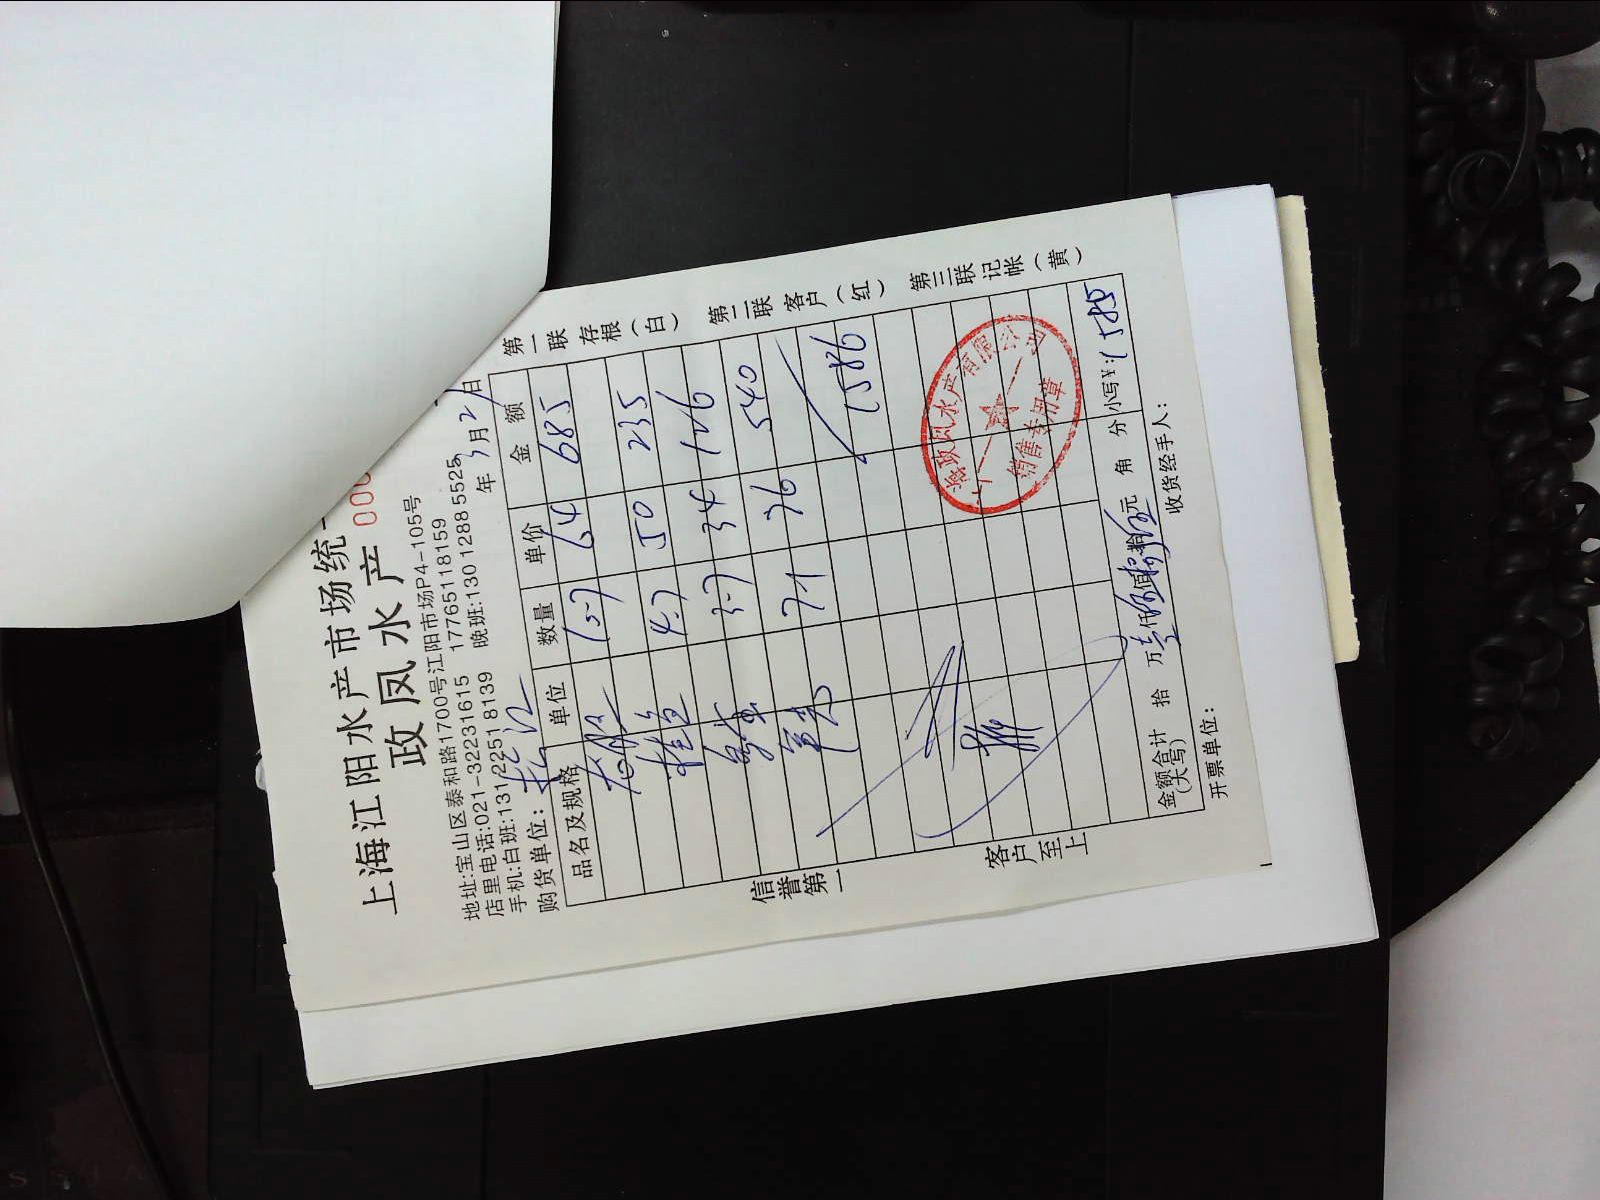 上海江阳水产市场统一
政凤水产
000
地址:宝山区泰和路1700号江阳市场P4-105号
店里电话:021-32231615 17765118159
手机:白班:131 2251 8139 晚班:130 1288 5525
购货单位: 年 3月21日
品名及规格 单位 数量 单价 金额
10-7 64 685
4-7 50 235
3-7 34 126
7-1 76 540
1586
金额合计(大写) 拾 万 壹仟 伍佰 元 角 分 小写¥:1585
开票单位: 收货经手人:
第一联 存根(白) 第二联 客户(红) 第三联 记帐(黄)
信誉第一 客户至上
海政凤水产有限公司
销售专用章